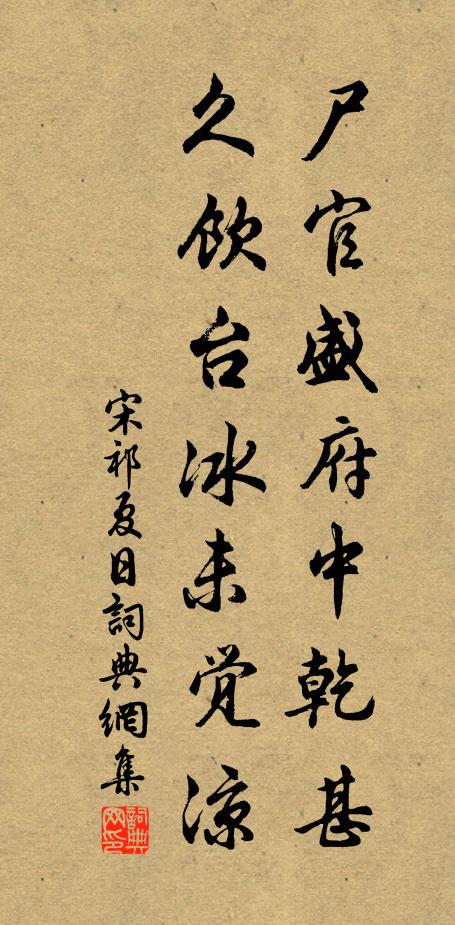 尸官盛府中乾甚
久飲台冰未觉凉
宋祁夏日詞典網集
詞典網印